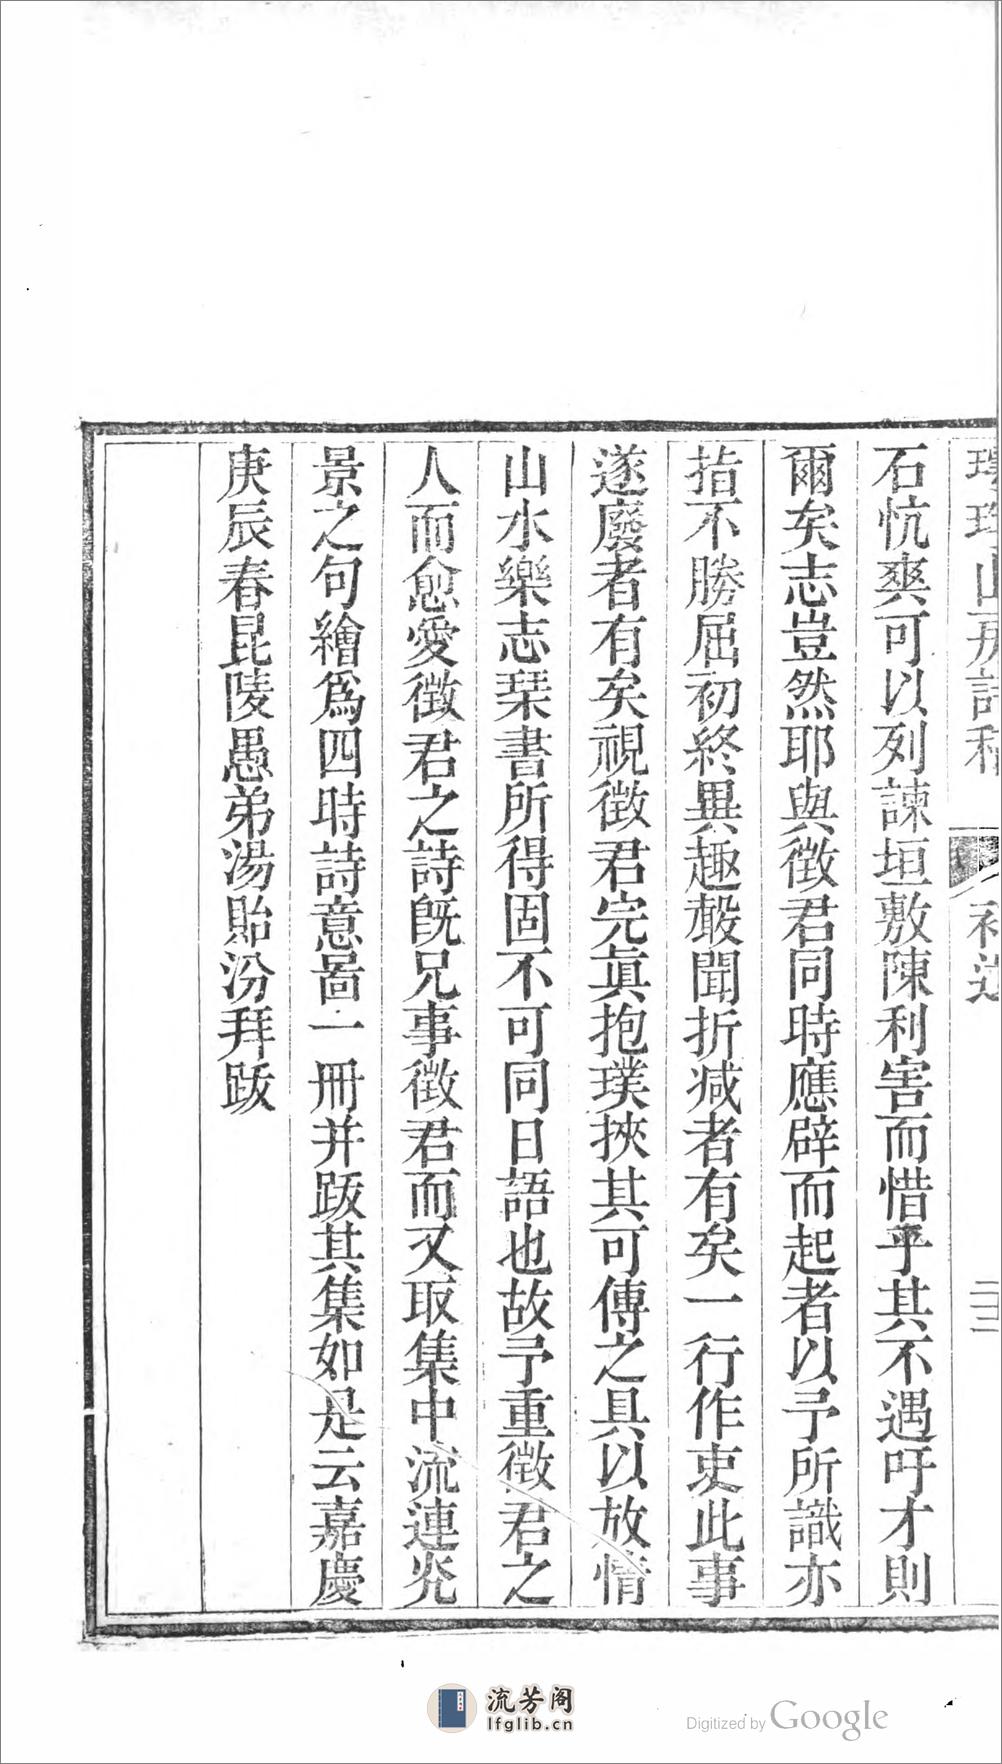 石忼爽可以列諫垣敷陳利害而惜乎其不遇吁才則
爾矣志豈然耶與徵君同時應辟而起者以予所識亦
指不勝屈初終異趣觳聞折減者有矣一行作吏此事
遂廢者有矣視徵君完眞抱璞挾其可傳之具以放情
山水樂志琹書所得固不可同日語也故予重徵君之
人而愈愛徵君之詩旣兄事徵君而又取集中流連光
景之句繪爲四時詩意啚一冊并跋其集如是云嘉慶
庚辰春昆陵愚弟湯貽汾拜跋
流芳阁
lfglib.cn
Digitized by Google